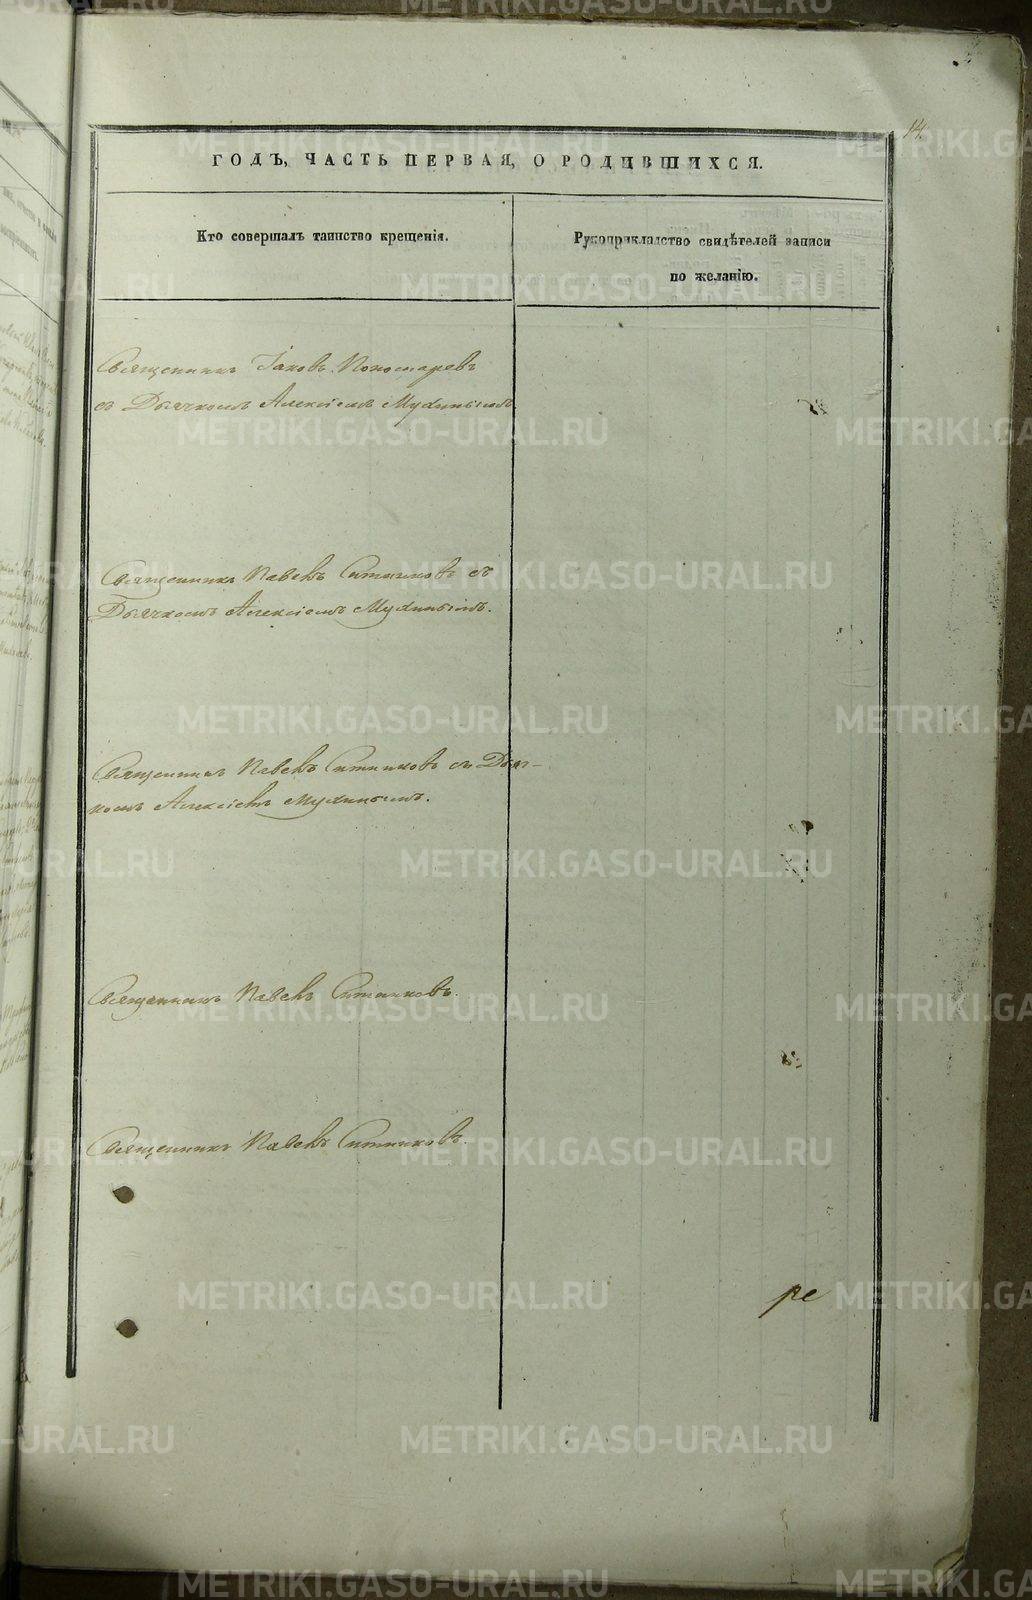 14.
ГОДЪ, ЧАСТЬ ПЕРВАЯ, О РОДИВШИХСЯ.
Кто совершалъ таинство крещенія.
Рукоприкладство свидѣтелей записи
по желанію.
Священникъ Іаковъ Пономаревъ
съ Дьячкомъ Алексіемъ Мухинымъ
Священникъ Павелъ Ситниковъ съ
Дьячкомъ Алексіемъ Мухинымъ.
Священникъ Павелъ Ситниковъ съ Дьяч-
комъ Алексіемъ Мухинымъ.
Священникъ Павелъ Ситниковъ.
Священникъ Павелъ Ситниковъ.
ре
METRIKI.GASO-URAL.RU